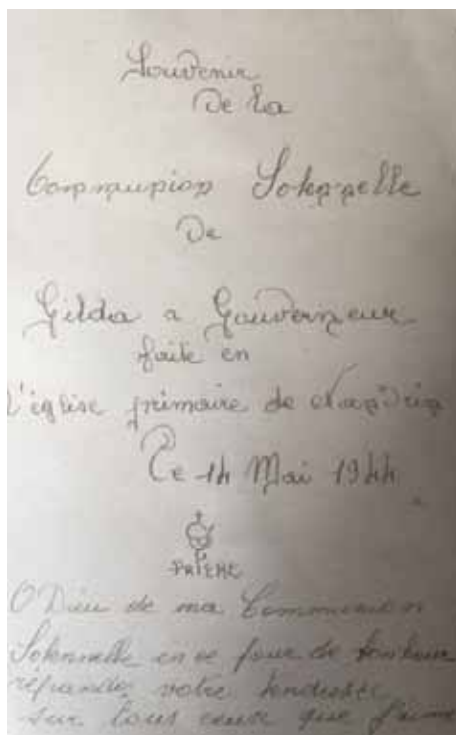 Souvenir
De la
Communion Solennelle
De
Gilda a Gouverneur
faite en
l'église primaire de Nandrin
Ce 14 Mai 1944
PRIERE
O Dieu de ma Communion
Solennelle en ce jour de bonheur
répandez votre tendresse
sur tous ceux que j'aime